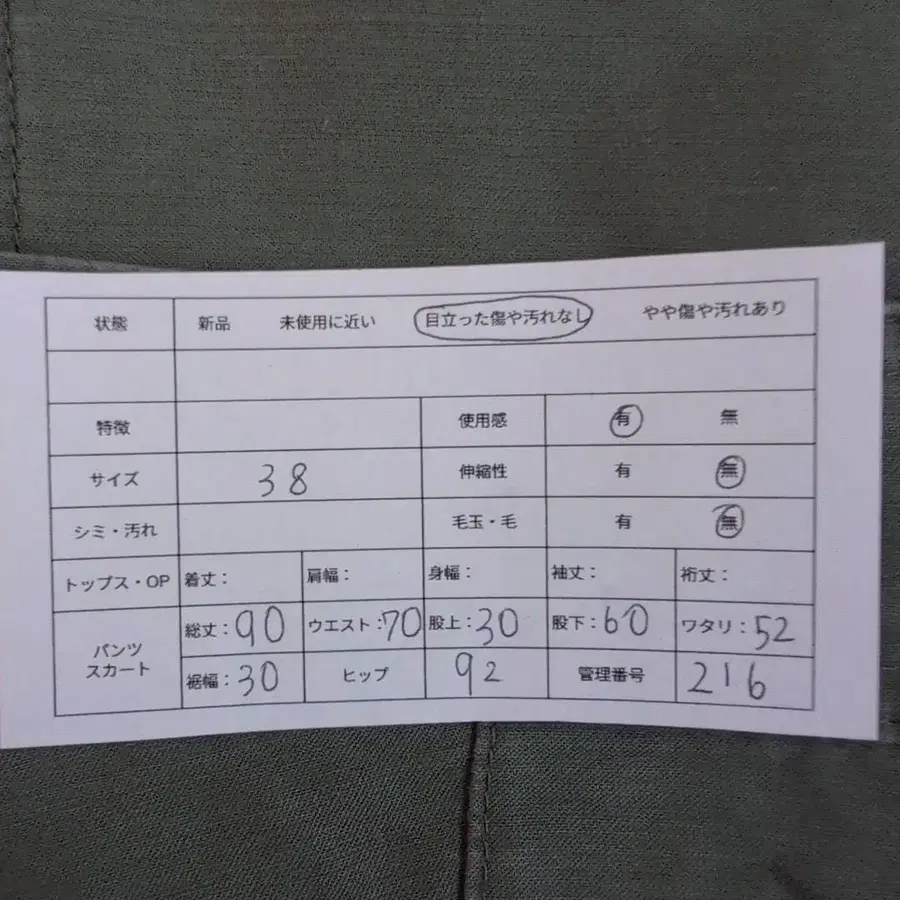 状態 新品 未使用に近い 目立った傷や汚れなし やや傷や汚れあり
特徴 使用感 有 無
サイズ 38 伸縮性 有 無
シミ・汚れ 毛玉・毛 有 無
トップス・OP 着丈: 肩幅: 身幅: 袖丈: 裄丈:
パンツ
スカート
総丈:90 ウエスト:70 股上:30 股下:60 ワタリ:52
裾幅:30 ヒップ 92 管理番号 216